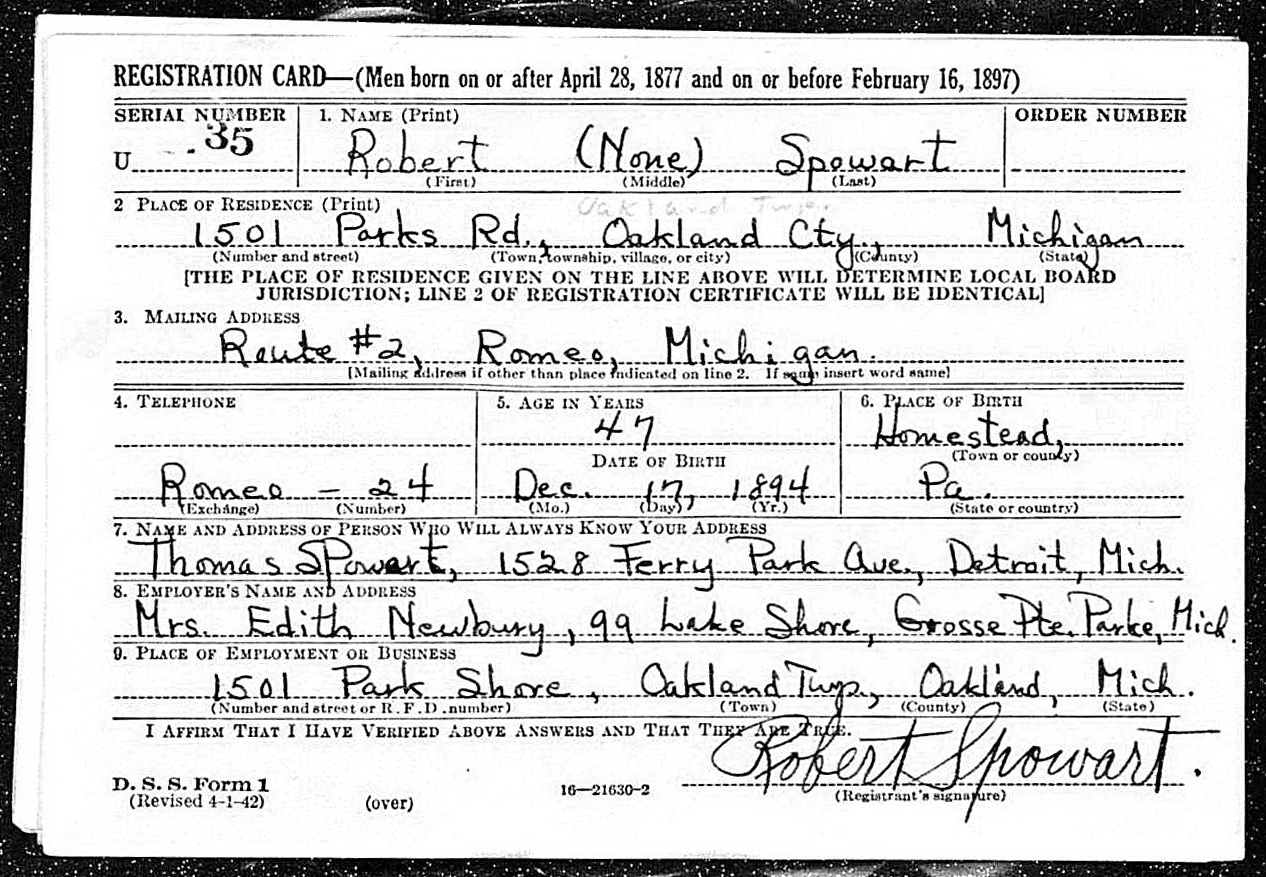 REGISTRATION CARD—(Men born on or after April 28, 1877 and on or before February 16, 1897)
SERIAL NUMBER 1. NAME (Print) ORDER NUMBER
U 35 Robert (None) Spowart
(First) (Middle) (Last)
2 PLACE OF RESIDENCE (Print) Oakland Twp.
1501 Parks Rd., Oakland Cty., Michigan
(Number and street) (Town, township, village, or city) (County) (State)
[THE PLACE OF RESIDENCE GIVEN ON THE LINE ABOVE WILL DETERMINE LOCAL BOARD
JURISDICTION; LINE 2 OF REGISTRATION CERTIFICATE WILL BE IDENTICAL]
3. MAILING ADDRESS
Route #2, Romeo, Michigan.
[Mailing address if other than place indicated on line 2. If same insert word same]
4. TELEPHONE 5. AGE IN YEARS 6. PLACE OF BIRTH
47 Homestead,
DATE OF BIRTH (Town or county)
Romeo - 24 Dec. 17, 1894 Pa.
(Exchange) (Number) (Mo.) (Day) (Yr.) (State or country)
7. NAME AND ADDRESS OF PERSON WHO WILL ALWAYS KNOW YOUR ADDRESS
Thomas SPowart, 1528 Ferry Park Ave., Detroit, Mich.
8. EMPLOYER'S NAME AND ADDRESS
Mrs. Edith Newbury, 99 Lake Shore, Grosse Pte. Parke, Mich.
9. PLACE OF EMPLOYMENT OR BUSINESS
1501 Park Shore, Oakland Twp., Oakland, Mich.
(Number and street or R. F. D. number) (Town) (County) (State)
I AFFIRM THAT I HAVE VERIFIED ABOVE ANSWERS AND THAT THEY ARE TRUE.
Robert Spowart.
D. S. S. Form 1
(Revised 4-1-42) (over) 16—21630-2 (Registrant's signature)